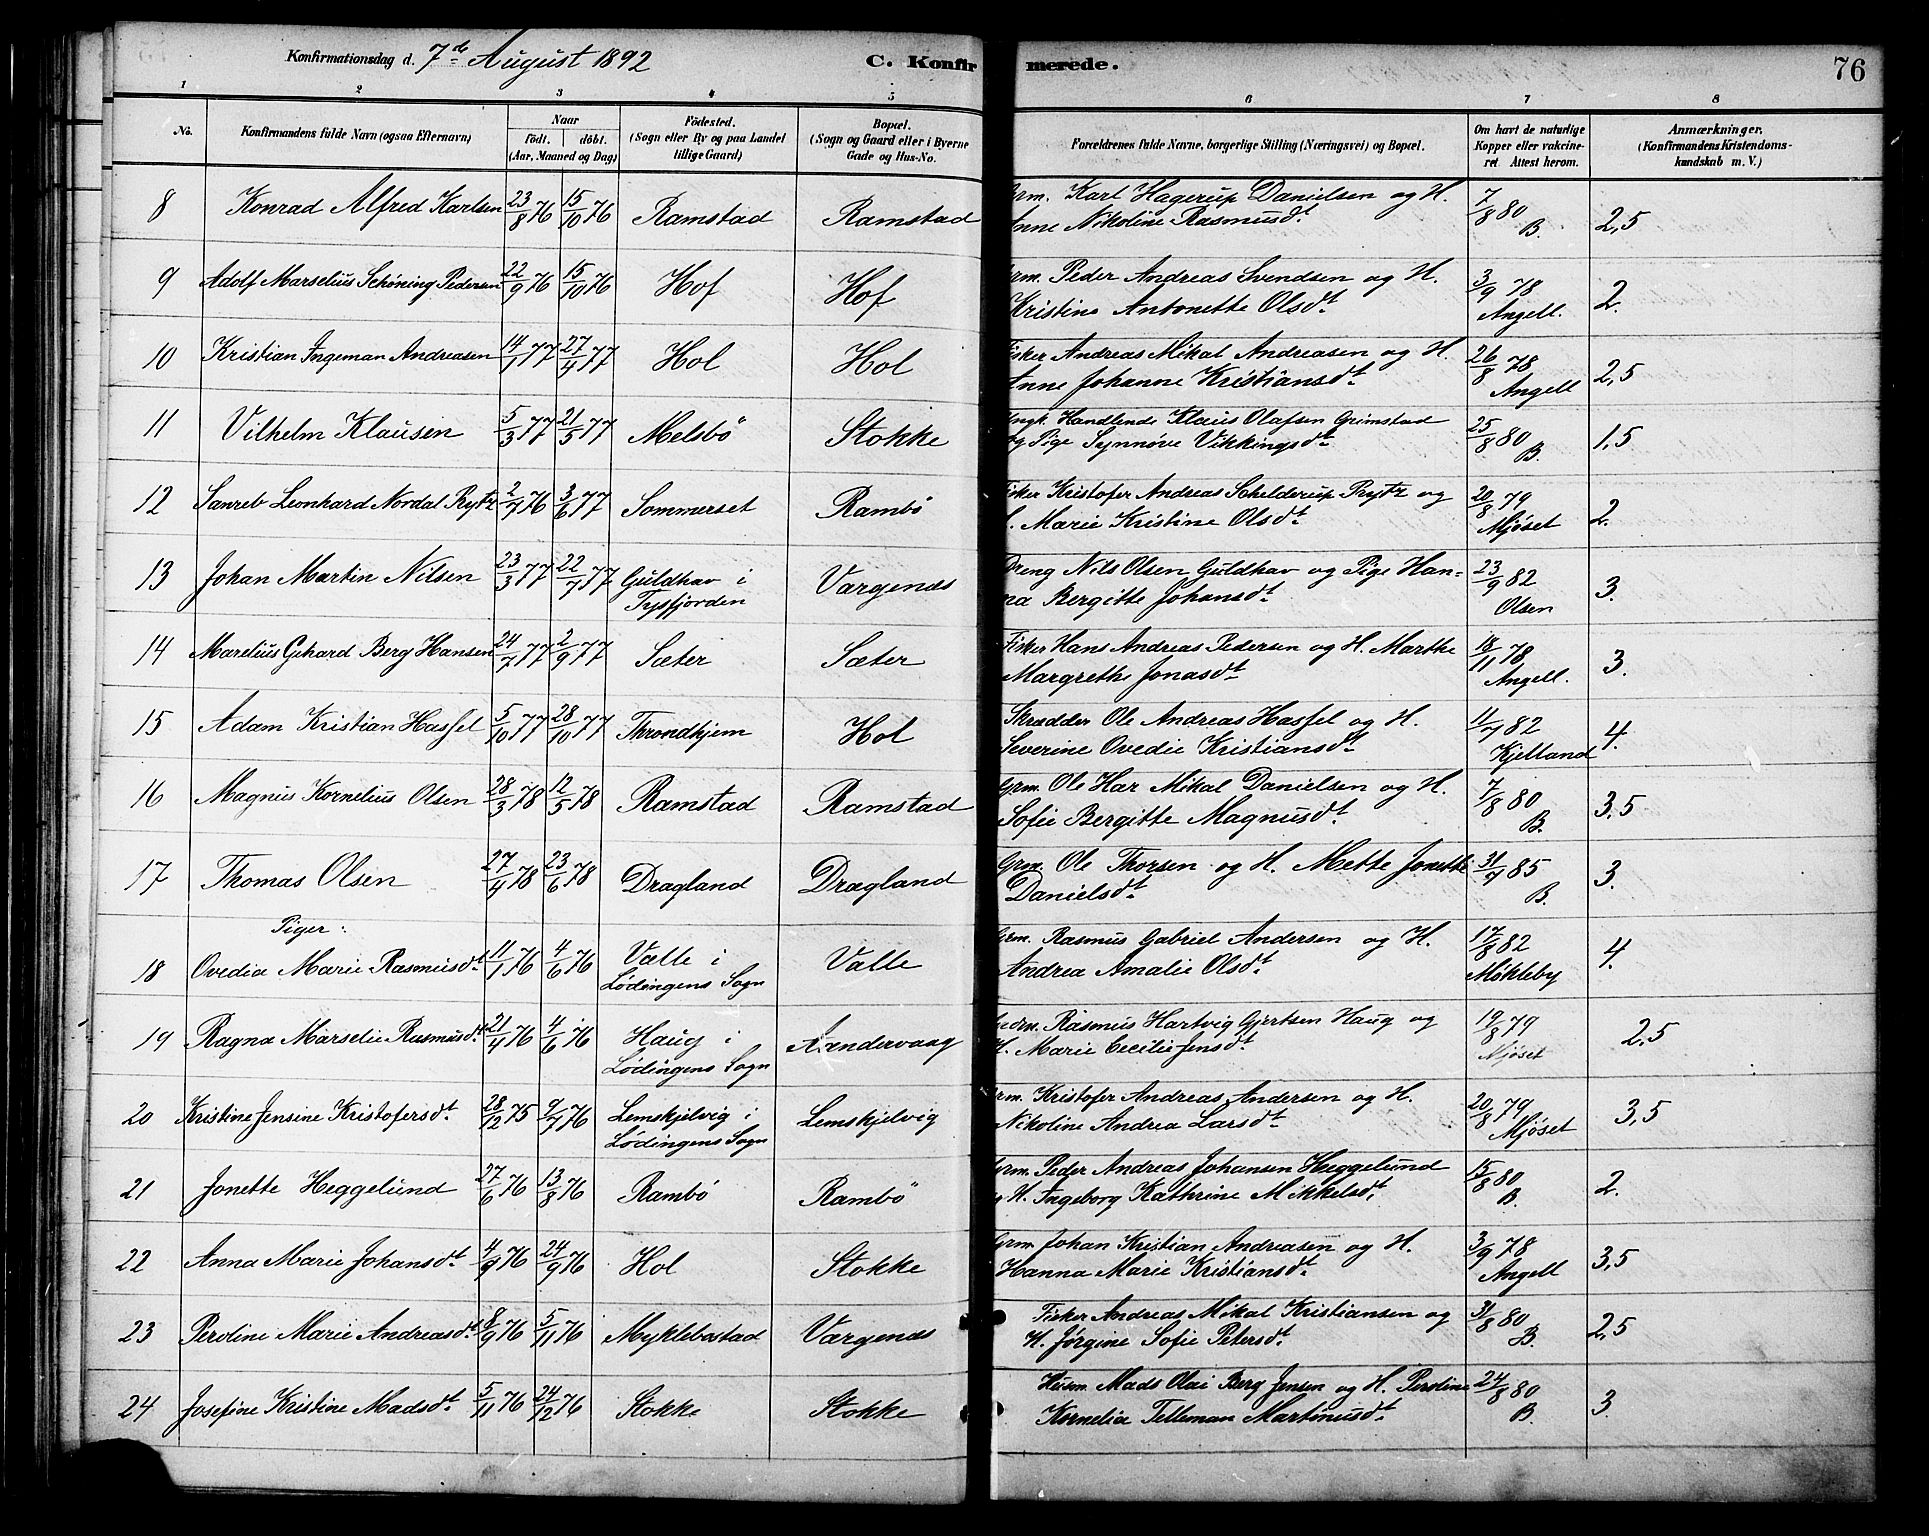 Konfirmationsdag d. 7de August 1892 C. Konfir merede. 76
1 2 3 4 5 6 7 8
No. Konfirmandens fulde Navn (ogsaa Efternavn) Naar født. døbt. (Aar, Maaned og Dag) Fødested. (Sogn eller By og paa Landet tillige Gaard) Bopæl. (Sogn og Gaard eller i Byerne Gade og Hus-No. Forældrenes fulde Navne, borgerlige Stilling (Næringsvei) og Bopæl. Om havt de naturlige Kopper eller vakcineret Attest herom. Anmærkninger. (Konfirmandens Kristendomskundskab m. V.)
8 Konrad Alfred Karlsen 23/8 76 15/10 76 Ramstad Ramstad Grm. Karl Hagerup Danielsen og H. 7/8 80
Anne Nikoline Rasmusdt B. 2,5
9 Adolf Marselius Schøning Pedersen 22/9 76 15/10 76 Hof Hof Grm. Peder Andreas Svendsen og H. 3/9 78
Kristine Antonette Olsdt Angell. 2.
10 Kristian Ingeman Andreasen 14/1 77 27/4 77 Hol Hol Fisker Andreas Mikal Andreasen og H. 26/8 78
Anne Johanne Kristiansdt Angell 2,5
11 Vilhelm Klausen 5/3 77 21/5 77 Melsbö Stokke Ungk. Handlende Klaus Olafsen Grimstad 25/8 80
og Pige Synnöve Vikkingsdt B. 1,5
12 Sanreb Leonhard Nordal Prytz 2/7 76 3/6 77 Sommerset Rambö Fisker Kristofer Andreas Schelderup Prytz og 20/8 79
H. Marie Kristine Olsdt Mjöset 2.
13 Johan Martin Nilsen 23/3 77 22/7 77 Guldhav i Vargenæs Dreng Nils Olsen Guldhav og Pige Han= 23/9 82
Tysfjorden na Bergitte Johansdt Olsen 3.
14 Marelius Gehard Berg Hansen 24/7 77 2/9 77 Sæter Sæter Fisker Hans Andreas Pedersen og H. Marthe 18/11 78
Margrethe Jonasdt Angell. 3.
15 Adam Kristian Hassel 5/10 77 28/10 77 Throndhjem Hol Skrædder Ole Andreas Hassel og H. 11/7 82
Severine Ovedie Kristiansdt Kjelland 4.
16 Magnus Kornelius Olsen 28/3 78 12/5 78 Ramstad Ramstad Grm. Ole Har Mikal Danielsen og H. 7/8 80
Sofie Bergitte Magnusdt B. 3,5
17 Thomas Olsen 27/4 78 23/6 78 Dragland Dragland Grm. Ole Thorsen og H. Mette Jonette 31/7 85
Danielsdt B. 3.
Piger:
18 Ovedia Marie Rasmusdt 11/1 76 4/6 76 Valle i Valle Grm. Rasmus Gabriel Andersen og H. 17/8 82
Lødingens Sogn Andrea Amalie Olsdt Møkleby 4.
19 Ragna Marselie Rasmusdt 21/4 76 4/6 76 Haug i Rasmus Hartvig Gjertsen Haug og 19/8 79
Lødingens Sogn H. Marie Cecilie Jensdt Mjöset 2,5
20 Kristine Jensine Kristofersdt 28/12 75 9/7 76 Lemskjelvig i Lemskjelvig Grm. Kristofer Andreas Andersen og H. 20/8 79
Lødingens Sogn Nikoline Andrea Larsdt Mjöset 3,5
21 Jonette Heggelund 27/6 76 13/8 76 Rambö Rambö Grm. Peder Andreas Johansen Heggelund 15/8 80
og H. Ingeborg Kathrine Mikkelsdt B. 2.
22 Anna Marie Johansdt 4/9 76 24/9 76 Hol Stokke Grm. Johan Kristian Andreasen og H. 3/9 78
Hanna Marie Kristiansdt Angell 3,5
23 Peroline Marie Andreasdt 8/9 76 5/11 76 Myklebostad Vargenæs Fisker Andreas Mikal Kristiansen og 31/8 80
H. Jørgine Sofie Petersdt B. 2,5
24 Josefine Kristine Madsdt 5/11 76 24/12 76 Stokke Stokke Husm. Mads Olai Berg Jensen og H. Peroline 24/8 80
Kornelia Telleman Martinusdt B. 3.